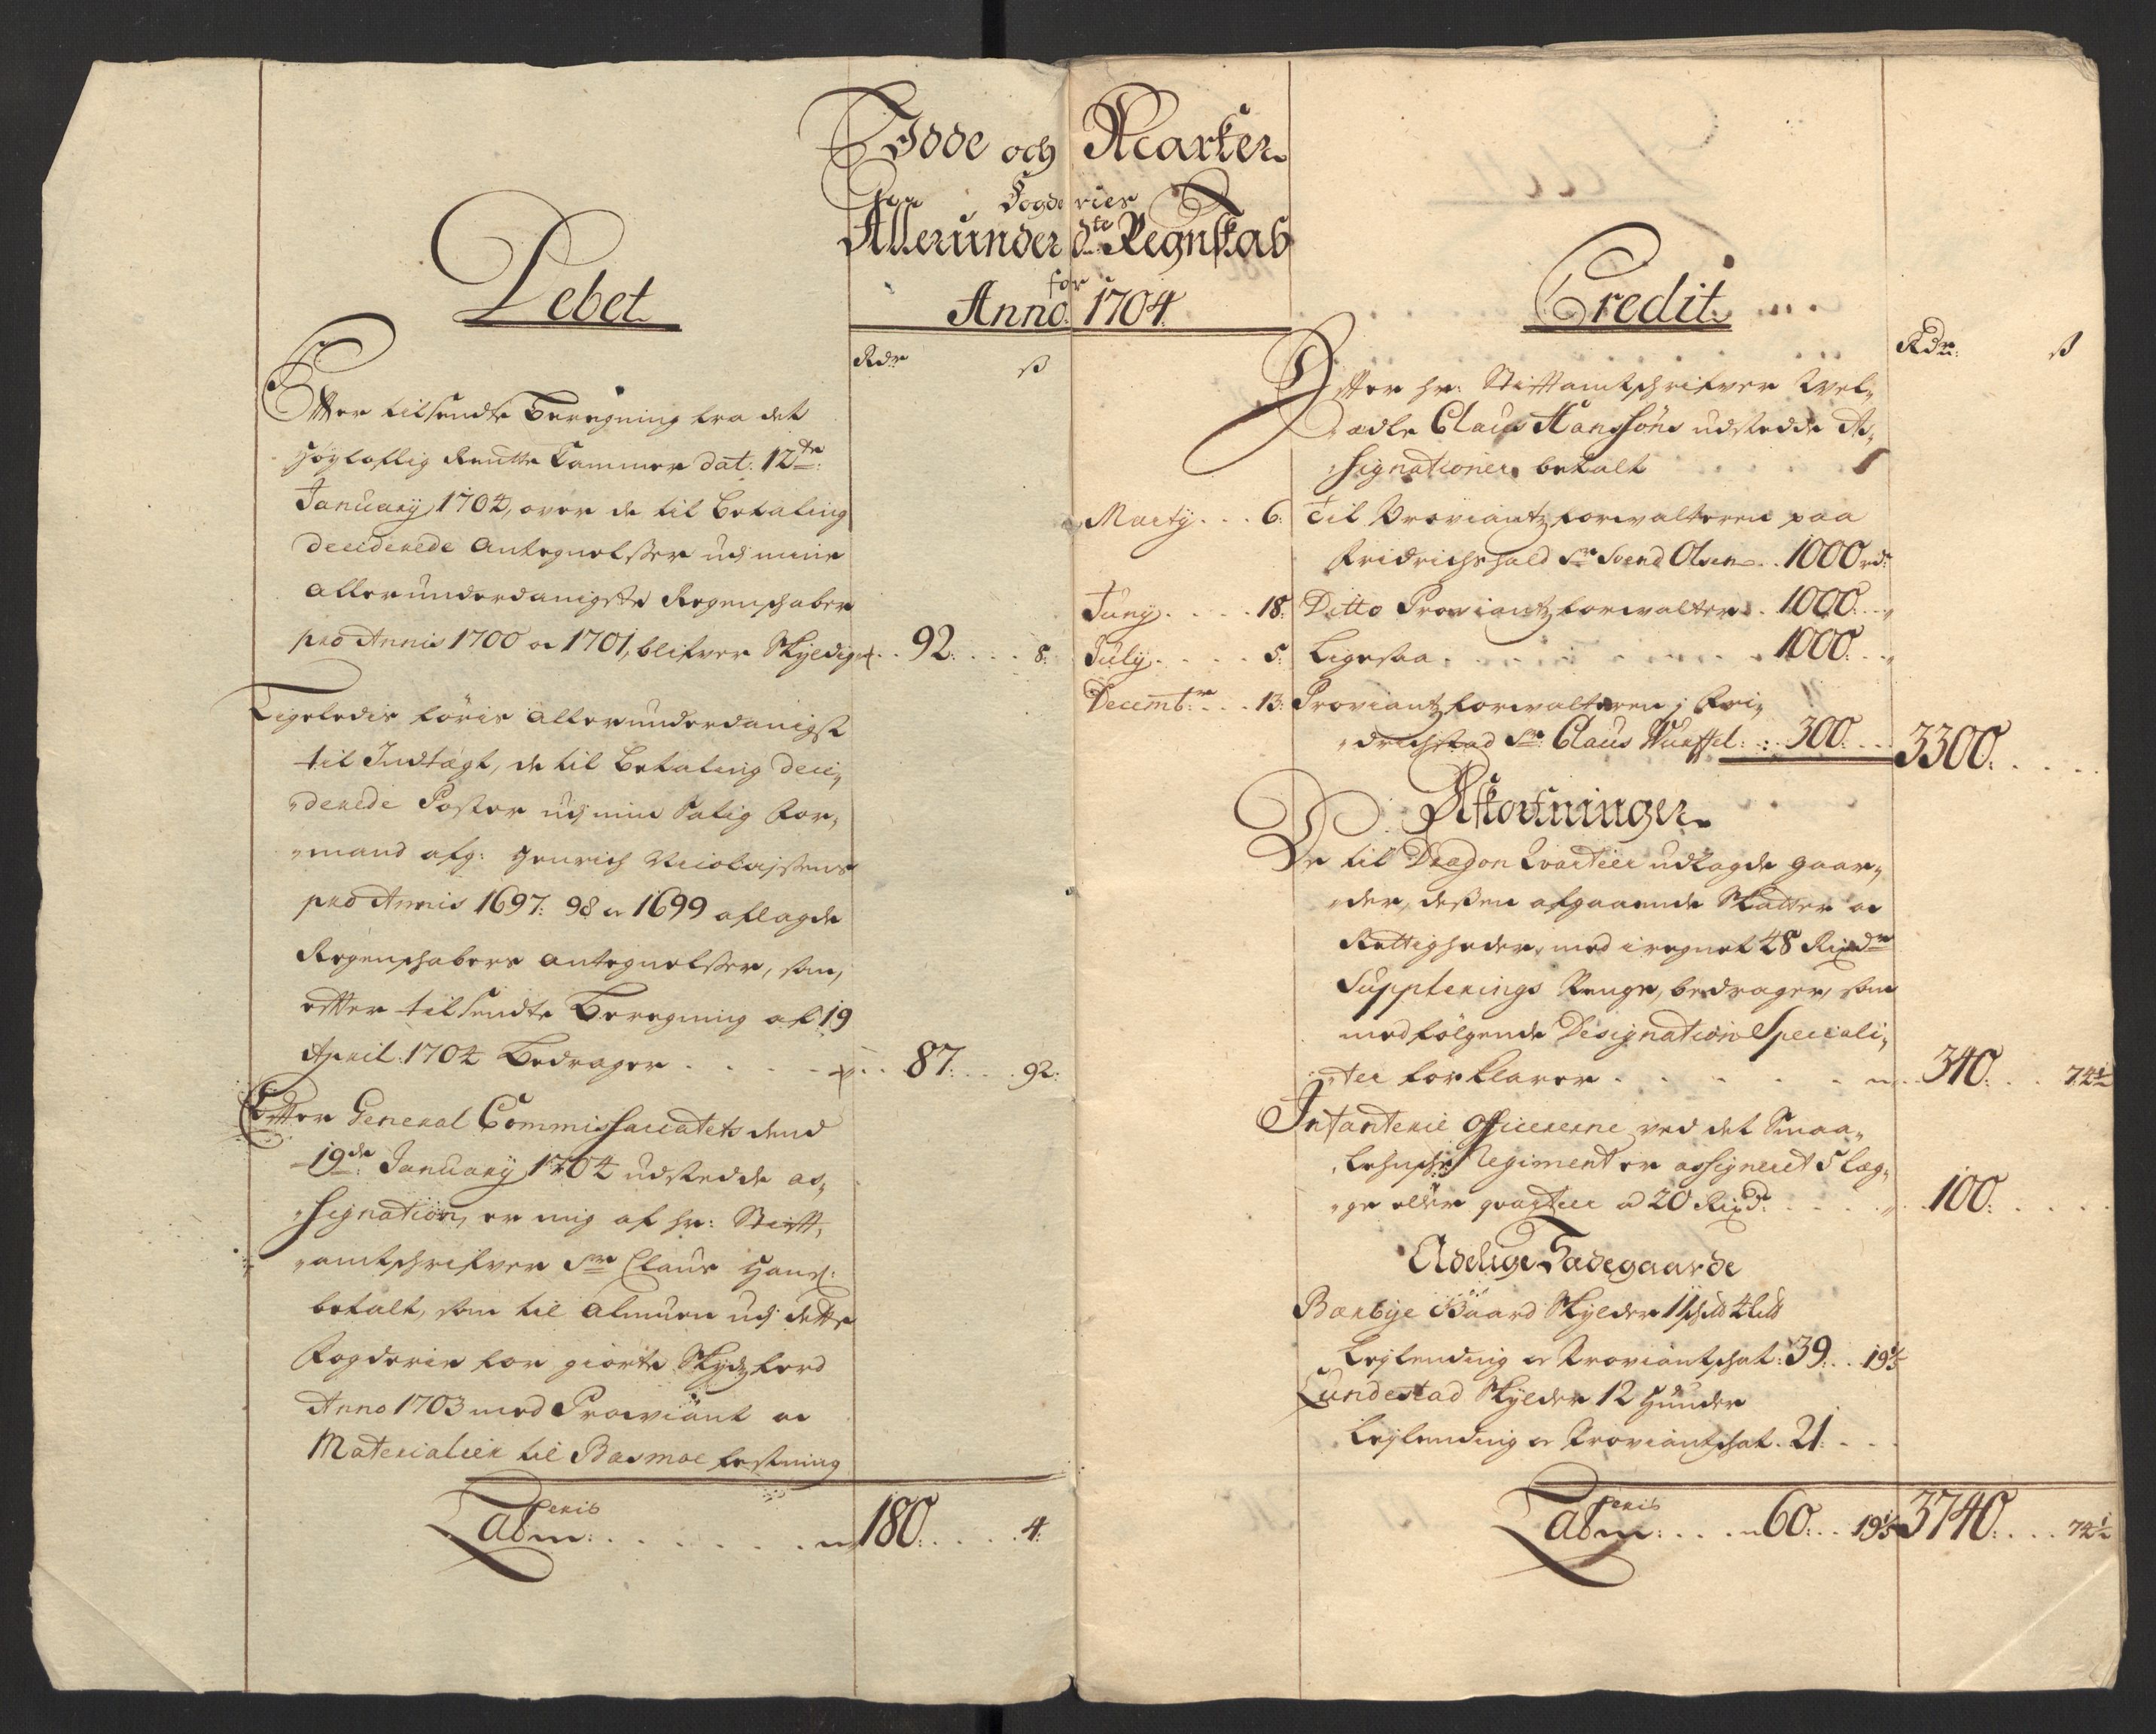 Idde och Marker
Fogderies
Allerunderd: ste Regnskab
for
Anno 1704
Debet
Rdr ß
Efter tilsendte Beregning fra det
Høyloflig Rentte Cammer dat: 12te
January 1704, over de til betaling
deciderede antegnelsser udj mine
allerunderdanigste Regenschaber
pro Annis 1700 oc 1701, blifver Skyldig 92: 8:
Ligeledis föris allerunderdanigst
til Indtægt, de til betaling deci„
„derede Poster udj min Salig For„
„mand afg: Henrich Nicolajssens
pro Annis 1697: 98 oc 1699 aflagde
Regenschabers antegnelsser, som,
efter tilsendte Beregning af 19
April: 1704 Bedrager 87: 92:
Efter General Commissariatets dend
19de January 1704 udstedde as„
„signation, er mig af hr: Stift„
„amtschrifver Sr Claus Hans:
betalt, som til almuen udj dette
Fogderie for giorte Skydtzferd
Anno 1703 med Proviant oc
Materialier til Basmoe festning
Lateris
abm: 180: 4:
Credit
Rdr: ß
Efter hr: Stiftamtschrifver Wel„
„ædle Claus Hanssøns udstedde As„
„signationer betalt
Marty 6: Til Proviantzforvalteren paa
Fridrichshald Sr Svend Olsen 1000 rd:
Juny 18: Ditto Proviantzforvalter 1000: „
July 5: Ligesaa 1000: „
Decembr: 13: Proviantzforvalteren i Fri„
„drichstad Sr: Claus 300: 3300:
Afkortninger
De til Dragon Qvarteer udlagde gaar„
„der, deßen afgaaende Skatter oc
Rettigheder, med iregnet 48 Rixdr
Supplerings Penge, bedrager, som
medfölgende Designation Speciali„
„ter forklarer 340: 74½
Infanterie officererne ved det Smaa„
„lehnsche Regiment er assigneret 5 læg„
„ge eller qvarteer a 20 Rixd: 100:
Adelige Sædegaarde
Bærbye Gaard Skylder 11 schtt 4 litt
Leylending oc Proviantschat: 39: 19⅕
Lundestad Skylder 12 Huuder
Leylending oc Proviantschat: 21:
Lateris
abm: 60: 19⅕ 3740: 74½